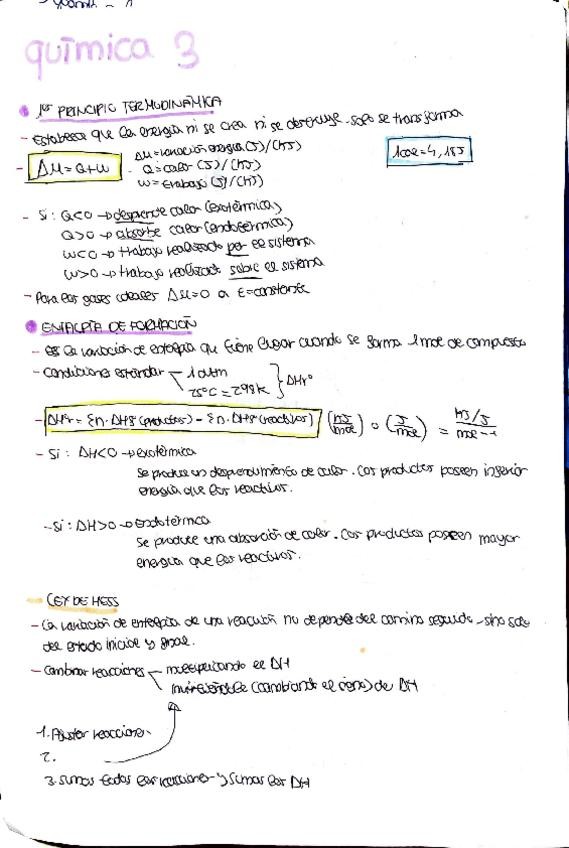 química 3
1er PRINCIPIO TERMODINÁMICA
- Establece que la energía ni se crea ni se destruye, solo se transforma
- ΔU = Q + W
ΔU = variación energía (J)/(KJ)
Q = calor (J)/(KJ)
W = trabajo (J)/(KJ)
1cal = 4,18J
- Si: Q<0 → desprende calor (exotérmica)
Q>0 → absorbe calor (endotérmica)
W<0 → trabajo realizado por el sistema
W>0 → trabajo realizado sobre el sistema
- Para los gases ideales ΔU=0 a t=constante
ENTALPÍA DE FORMACIÓN
- es la variación de entalpía que tiene lugar cuando se forma 1 mol de compuesto
- condiciones estándar
1 atm
25°C = 298K
} ΔHf°
- ΔHr = Σn·ΔHf (productos) - Σn·ΔHf (reactivos) (KJ/mol) o (J/mol) = KJ/J / mol⁻¹
- Si: ΔH<0 → exotérmica
Se produce un desprendimiento de calor. Los productos poseen inferior
energía que los reactivos.
- Si: ΔH>0 → Endotérmica
Se produce una absorción de calor. Los productos poseen mayor
energía que los reactivos.
LEY DE HESS
- La variación de entalpía de una reacción no depende del camino seguido, sino solo
del estado inicial y final.
- Combinar reacciones
multiplicando el ΔH
invirtiéndole (cambiando el signo) de ΔH
1. Ajustar reacciones.
2.
3. Sumas todas las reacciones y sumas los ΔH